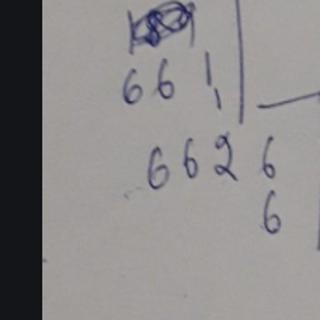 661
1
6626
6